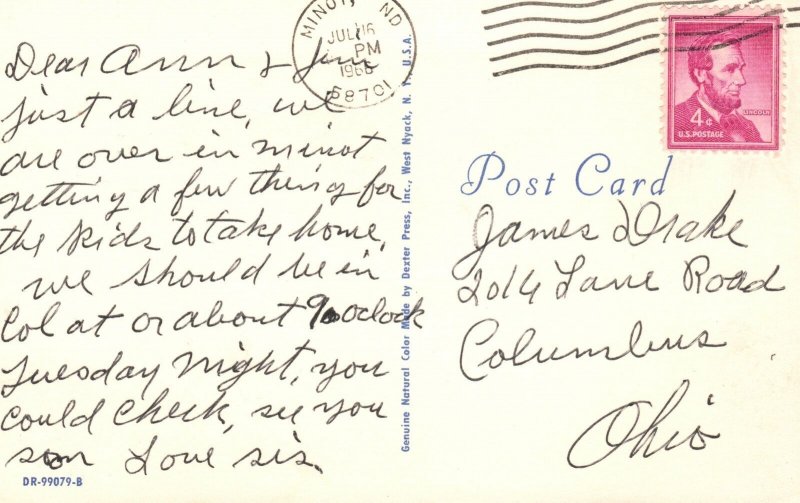 MINOT, ND
JUL 16
PM
1968
58701
Dear Ann & Jim
just a line, we
are over in minot
getting a few things for
the kids to take home,
we should be in
Col at or about 9 oclock
Tuesday night, you
could check, see you
soon Love sis.
DR-99079-B
Genuine Natural Color Made by Dexter Press, Inc., West Nyack, N. Y., U.S.A.
4¢
LINCOLN
U.S. POSTAGE
Post Card
James Drake
2014 Lane Road
Columbus
Ohio